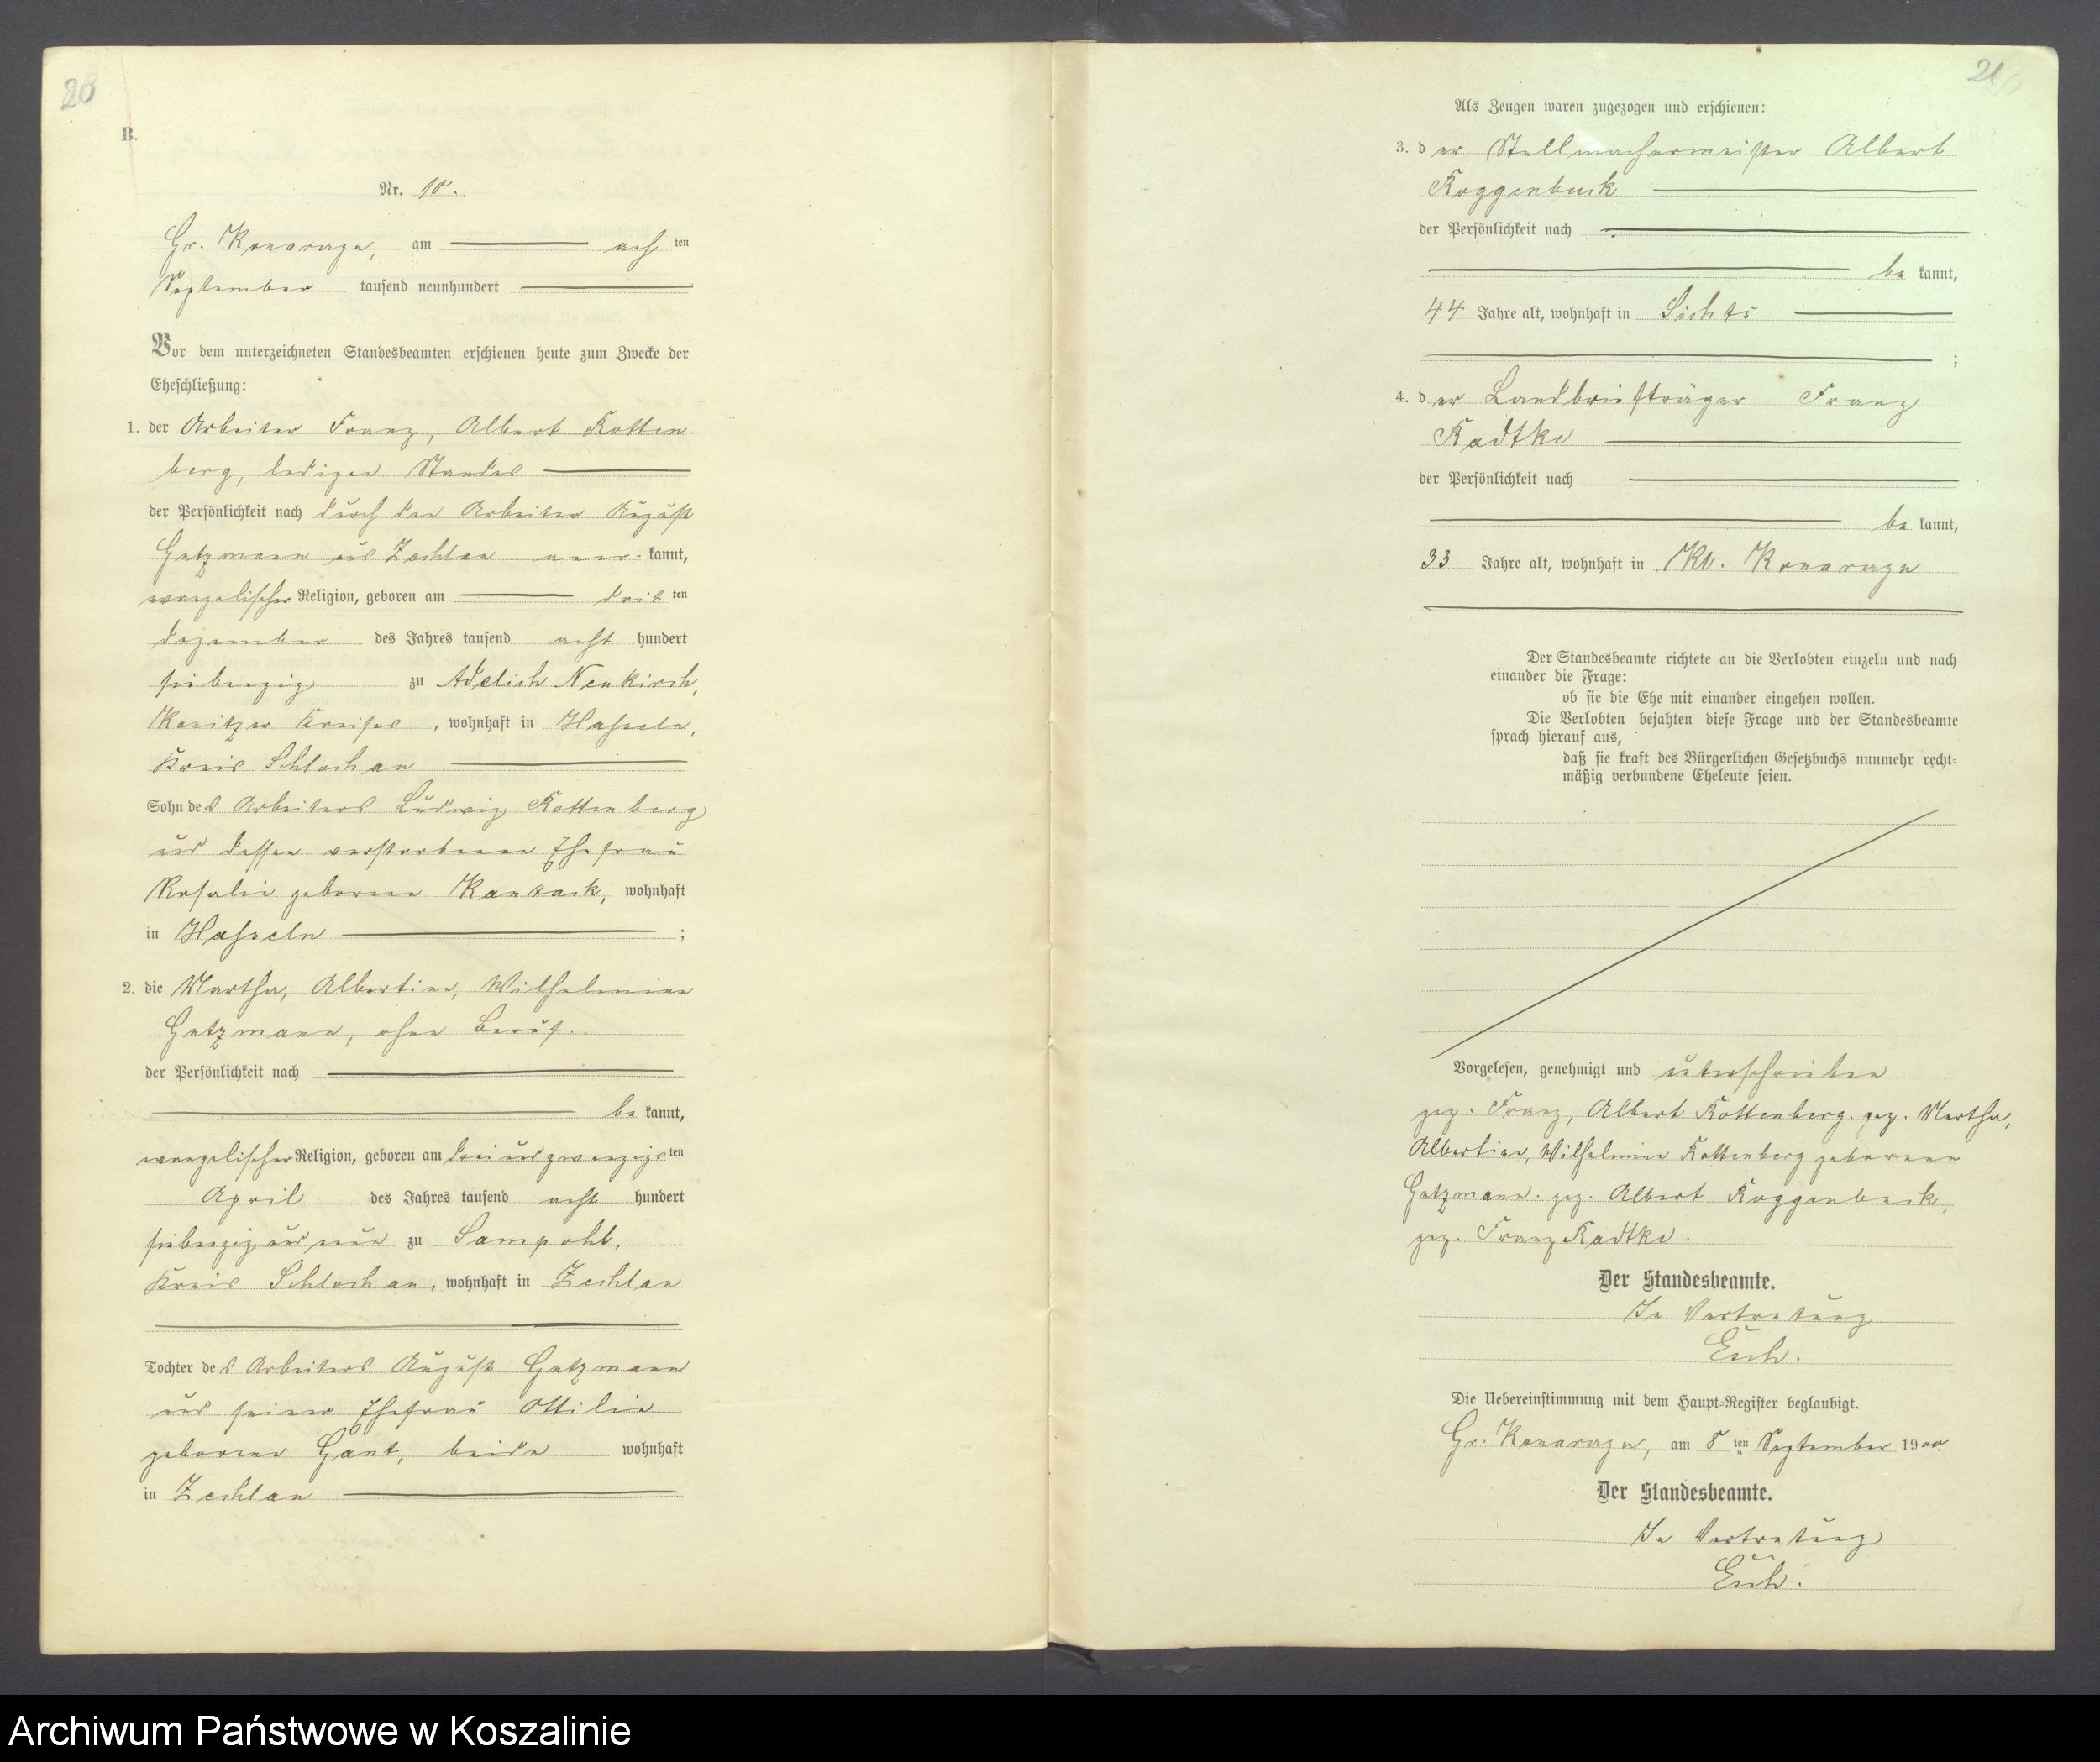 28
B.
Nr. 10.
Gr. Konarczyn, am ach ten
September tausend neunhundert
Vor dem unterzeichneten Standesbeamten erschienen heute zum Zwecke der
Eheschließung:
1. der Arbeiter Franz, Albert Rotten-
berg, ledigen Standes
der Persönlichkeit nach durch den Arbeiter August
Gatzmann aus Zechlau aner- kannt,
evangelischer Religion, geboren am drit ten
Dezember des Jahres tausend acht hundert
siebenzig zu Adelich Neukirch,
Konitzer Kreises, wohnhaft in Hasseln,
Kreis Schlochau
Sohn des Arbeiters Ludwig Rottenberg
und dessen verstorbenen Ehefrau
Rosalie geborene wohnhaft
in Hasseln ;
2. die Martha, Albertine, Wilhelmine
Gatzmann, ohne Beruf.
der Persönlichkeit nach
be kannt,
evangelischer Religion, geboren am dreiundzwanzigs ten
April des Jahres tausend acht hundert
siebenzig und neun zu Sampohl,
Kreis Schlochau, wohnhaft in Zechlau
Tochter des Arbeiters August Gatzmann
und seiner Ehefrau Ottilie
geborene Gant, beide wohnhaft
in Zechlau
Als Zeugen waren zugezogen und erschienen:
3. der Stellmachermeister Albert
Roggenbuck
der Persönlichkeit nach
be kannt,
44 Jahre alt, wohnhaft in Sichts
;
4. der Landbriefträger Franz
Radtke
der Persönlichkeit nach
be kannt,
33 Jahre alt, wohnhaft in Kl. Konarczyn
Der Standesbeamte richtete an die Verlobten einzeln und nach
einander die Frage:
ob sie die Ehe mit einander eingehen wollen.
Die Verlobten bejahten diese Frage und der Standesbeamte
sprach hierauf aus,
daß sie kraft des Bürgerlichen Gesetzbuchs nunmehr recht-
mäßig verbundene Eheleute seien.
Vorgelesen, genehmigt und unterschrieben
gez. Franz, Albert Rottenberg. gez. Martha,
Albertine, Wilhelmine Rottenberg geborene
Gatzmann. gez. Albert Roggenbuck,
gez. Franz Radtke.
Der Standesbeamte.
In Vertretung
Die Uebereinstimmung mit dem Haupt-Register beglaubigt.
Gr. Konarczyn, am 8 ten September 1900.
Der Standesbeamte.
In Vertretung
Archiwum Państwowe w Koszalinie